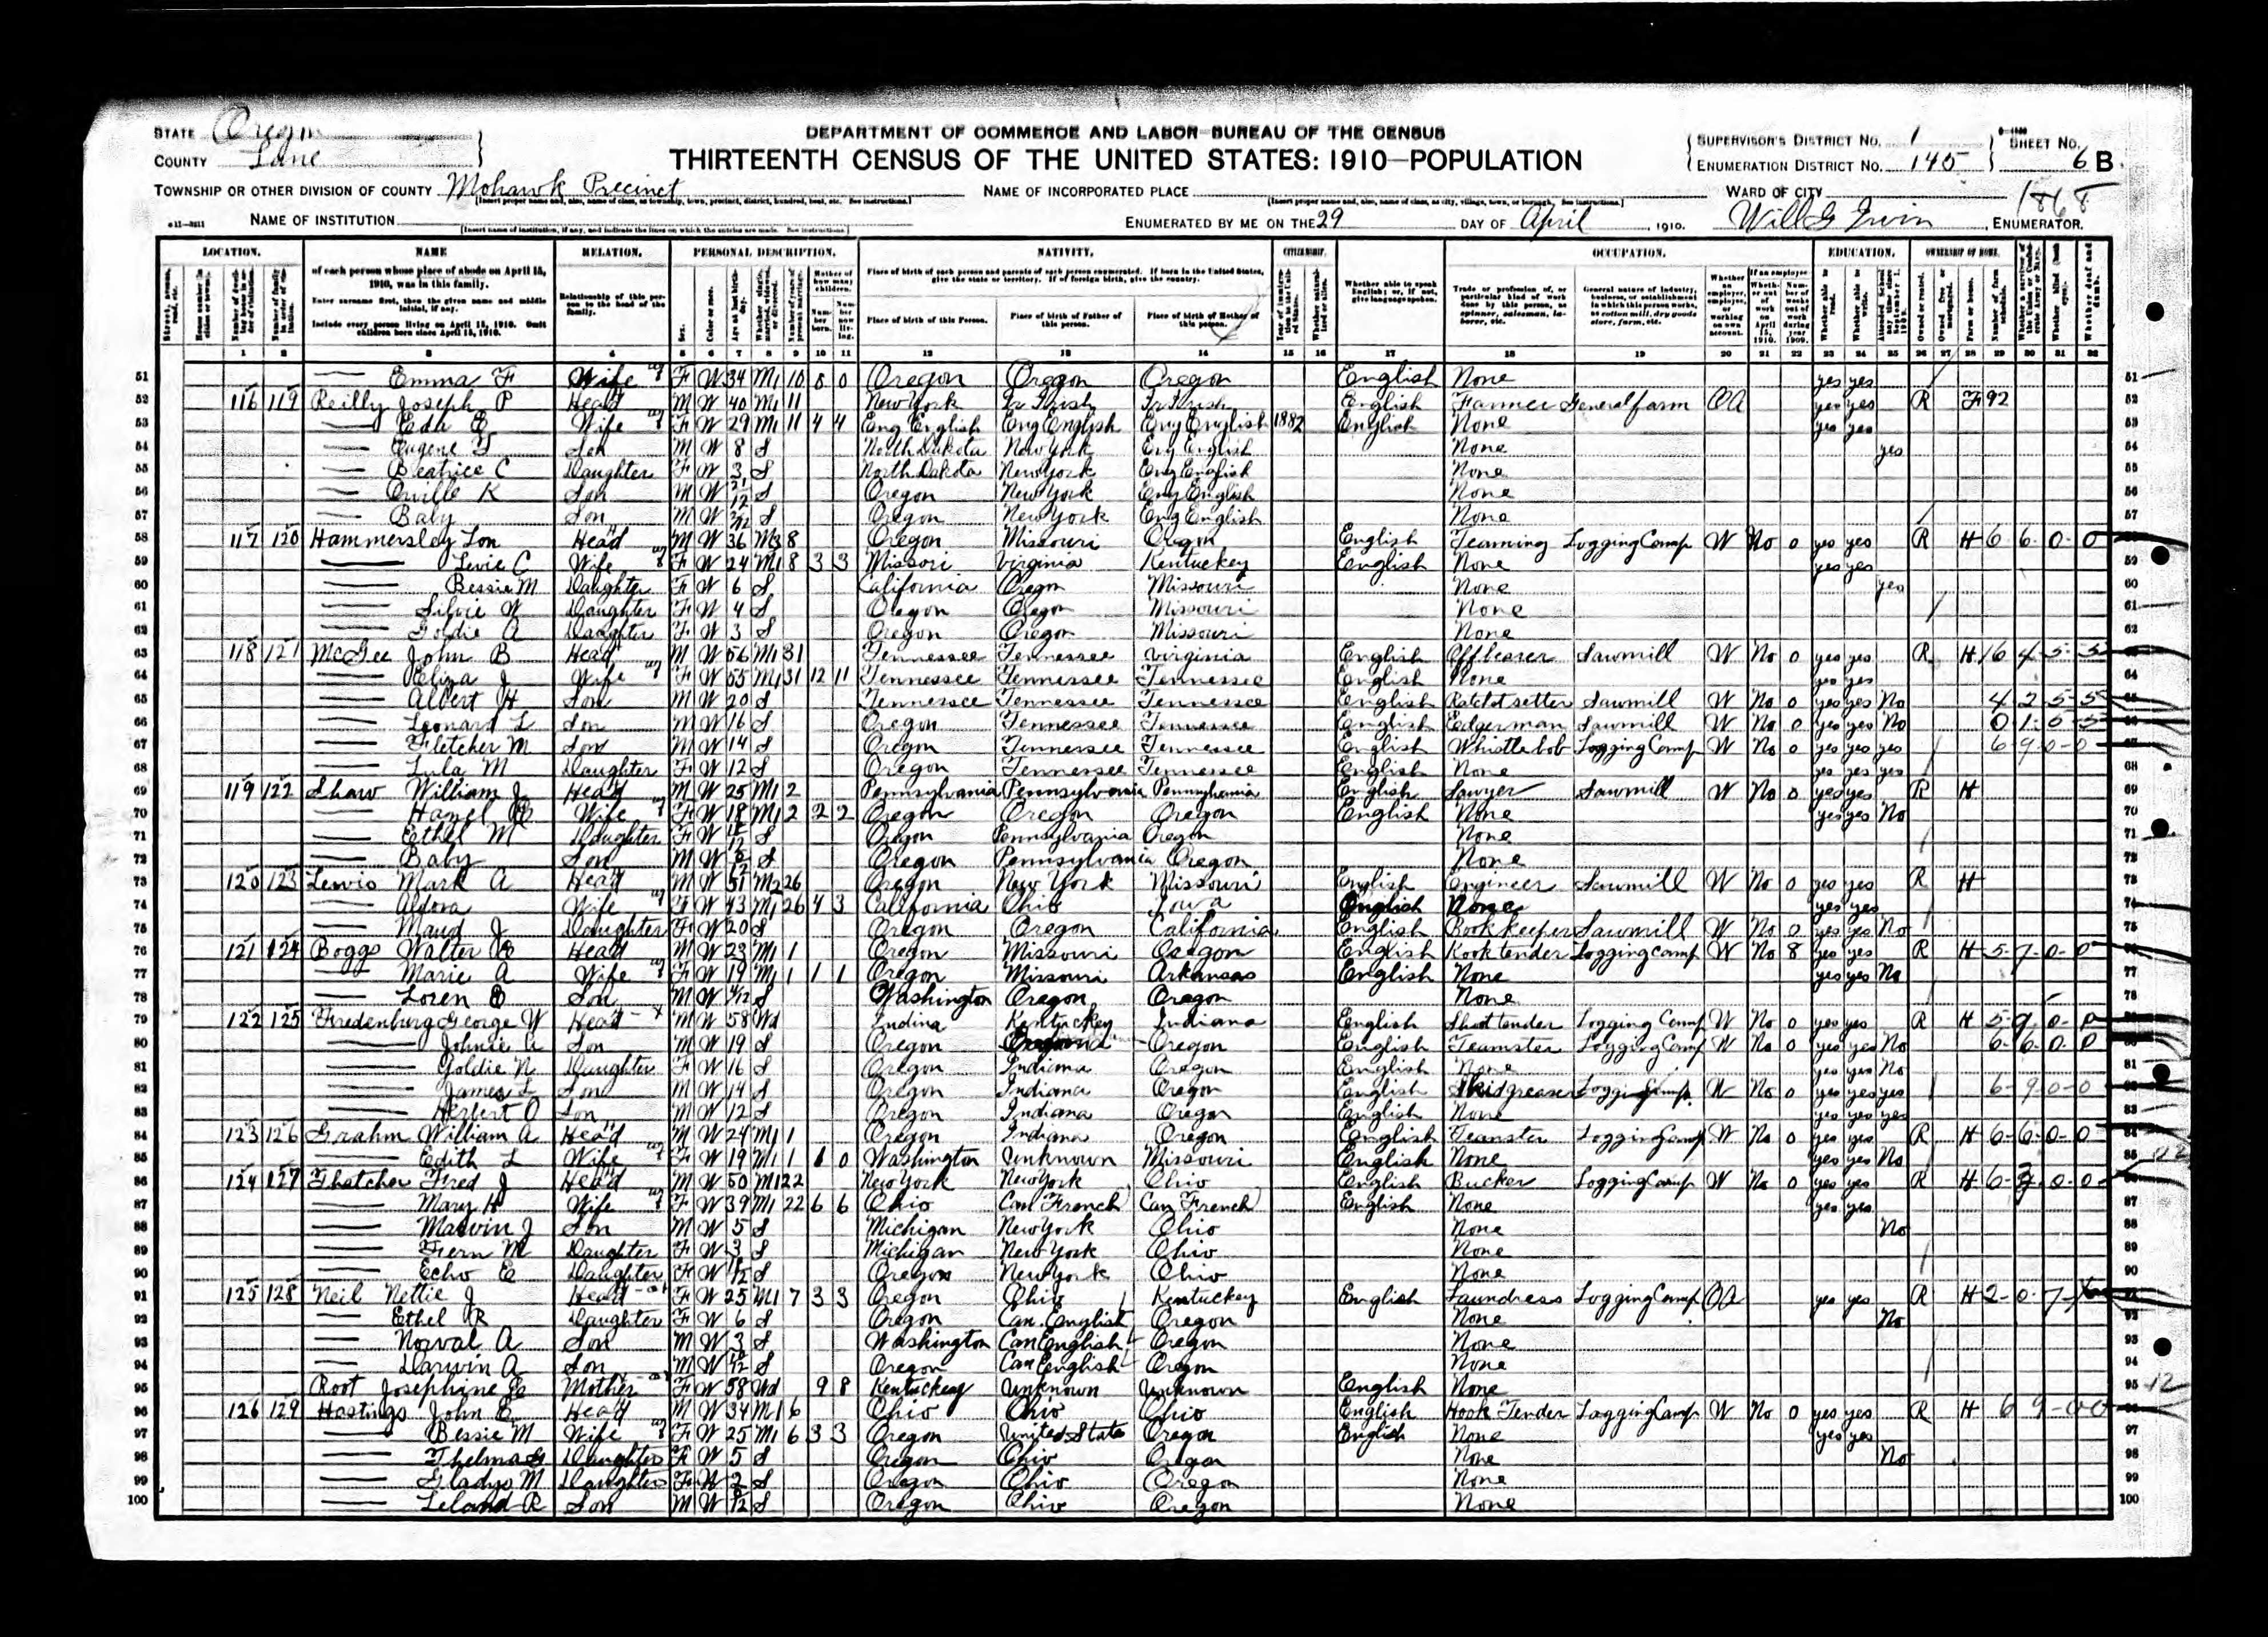 STATE Oregon
COUNTY Lane
DEPARTMENT OF COMMERCE AND LABOR—BUREAU OF THE CENSUS
THIRTEENTH CENSUS OF THE UNITED STATES: 1910—POPULATION
SUPERVISOR'S DISTRICT No. 1
ENUMERATION DISTRICT No. 145
SHEET No. 6 B
TOWNSHIP OR OTHER DIVISION OF COUNTY Mohawk Precinct
NAME OF INCORPORATED PLACE
WARD OF CITY
NAME OF INSTITUTION
ENUMERATED BY ME ON THE 29 DAY OF April, 1910. Will G Irwin, ENUMERATOR.
LOCATION. NAME RELATION. PERSONAL DESCRIPTION. NATIVITY. CITIZENSHIP. OCCUPATION. EDUCATION. OWNERSHIP OF HOME.
of each person whose place of abode on April 15, 1910, was in this family.
Enter surname first, then the given name and middle initial, if any.
Include every person living on April 15, 1910. Omit children born since April 15, 1910.
Relationship of this person to the head of the family.
Place of birth of each person and parents of each person enumerated. If born in the United States, give the state or territory. If of foreign birth, give the country.
Place of birth of this Person. Place of birth of Father of this person. Place of birth of Mother of this person.
Whether able to speak English; or, if not, give language spoken.
1 2 3 4 5 6 7 8 9 10 11 12 13 14 15 16 17 18 19 20 21 22 23 24 25 26 27 28 29 30 31 32
51 Emma F Wife F W 34 M1 10 0 0 Oregon Oregon Oregon English None yes yes 51
52 116 119 Reilly Joseph P Head M W 40 M1 11 New York Ir Irish Ir Irish English Farmer General farm OA yes yes R F 92 52
53 Eda E Wife F W 29 M1 11 4 4 Eng English Eng English Eng English 1882 English None yes yes 53
54 Eugene Son M W 8 S North Dakota New York Eng English None yes 54
55 Beatrice C Daughter F W 3 S North Dakota New York Eng English None 55
56 Orville K Son M W S Oregon New York Eng English None 56
57 Baby Son M W S Oregon New York Eng English None 57
58 117 120 Hammersley Lon Head M W 36 M3 8 Oregon Missouri Oregon English Teaming Logging Camp W No 0 yes yes R H 6 6 0 0
59 Levie C Wife F W 24 M1 8 3 3 Missori Virginia Kentuckey English None yes yes 59
60 Bessie M Daughter F W 6 S California Oregon Missouri None yes 60
61 Silvie N Daughter F W 4 S Oregon Oregon Missouri None 61
62 Goldie A Daughter F W 3 S Oregon Oregon Missouri None 62
63 118 121 McGee John B Head M W 56 M1 31 Tennessee Tennessee Virginia English Offbearer Sawmill W No 0 yes yes R H 6 4 5 5
64 Eliza J Wife F W 55 M1 31 12 11 Tennessee Tennessee Tennessee English None yes yes 64
65 Albert H Son M W 20 S Tennessee Tennessee Tennessee English Ratchet setter Sawmill W No 0 yes yes No 4 2 5 5
66 Leonard L Son M W 16 S Oregon Tennessee Tennessee English Edgerman Sawmill W No 0 yes yes No 0 1 5 5
67 Fletcher M Son M W 14 S Oregon Tennessee Tennessee English Whistle bob Logging Camp W No 0 yes yes yes 6 9 0 0
68 Lula M Daughter F W 12 S Oregon Tennessee Tennessee English None yes yes yes 68
69 119 122 Shaw William J Head M W 25 M1 2 Pennsylvania Pennsylvania Pennsylvania English Sawyer Sawmill W No 0 yes yes R H 69
70 Hazel Wife F W 18 M1 2 2 2 Oregon Oregon Oregon English None yes yes No 70
71 Ethel M Daughter F W S Oregon Pennsylvania Oregon None 71
72 Baby Son M W S Oregon Pennsylvania Oregon None 72
73 120 123 Lewis Mark A Head M W 51 M2 26 Oregon New York Missouri English Engineer Sawmill W No 0 yes yes R H 73
74 Aldora Wife F W 43 M1 26 4 3 California Ohio Iowa English None yes yes 74
75 Maud J Daughter F W 20 S Oregon Oregon California English Bookkeeper Sawmill W No 0 yes yes No 75
76 121 124 Boggs Walter Head M W 23 M1 1 Oregon Missouri Oregon English Hook tender Logging camp W No 8 yes yes R H 5 7 0 0
77 Marie A Wife F W 19 M1 1 1 1 Oregon Missouri Arkansas English None yes yes No 77
78 Loren Son M W S Washington Oregon Oregon None 78
79 122 125 Fredenburg George W Head M W 58 Wd Indina Kentuckey Indiana English tender Logging Camp W No 0 yes yes R H 5 9 0 0
80 Johnie A Son M W 19 S Oregon Oregon English Teamster Logging Camp W No 0 yes yes No 6 6 0 0
81 Goldie N Daughter F W 16 S Oregon Indiana Oregon English None yes yes No 81
82 James L Son M W 14 S Oregon Indiana Oregon English Skidgreaser Logging Camp W No 0 yes yes yes 6 9 0 0
83 Herbert O Son M W 12 S Oregon Indiana Oregon English None yes yes yes 83
84 123 126 Grahm William A Head M W 24 M1 1 Oregon Indiana Oregon English Teamster Logging Camp W No 0 yes yes R H 6 6 0 0
85 Edith L Wife F W 19 M1 1 0 Washington Unknown Missouri English None yes yes No 85
86 124 127 Thatcher Fred J Head M W 50 M1 22 New York New York Ohio English Bucker Logging Camp W No 0 yes yes R H 6 0 0
87 Mary H Wife F W 39 M1 22 6 6 Ohio Can French Can French English None yes yes 87
88 Marvin J Son M W 5 S Michigan New York Ohio None No 88
89 Fern M Daughter F W 3 S Michigan New York Ohio None 89
90 Echo E Daughter F W S Oregon New York Ohio None 90
91 125 128 Neil Nettie J Head F W 25 M1 7 3 3 Oregon Ohio Kentuckey English Laundress Logging Camp OA yes yes R H 2 0 7
92 Ethel R Daughter F W 6 S Oregon Can. English Oregon None No 92
93 Norval A Son M W 3 S Washington Can English Oregon None 93
94 Darwin A Son M W S Oregon Can English Oregon None 94
95 Root Josephine E Mother F W 58 Wd 9 8 Kentuckey Unknown Unknown English None 95
96 126 129 Hastings John E Head M W 34 M1 6 Ohio Ohio Ohio English Hook Tender Logging Camp W No 0 yes yes R H 6 9 0 0
97 Bessie M Wife F W 25 M1 6 3 3 Oregon United State Oregon English None yes yes 97
98 Thelma Daughter F W 5 S Oregon Ohio Oregon None No 98
99 Gladys M Daughter F W 2 S Oregon Ohio Oregon None 99
100 Leland R Son M W S Oregon Ohio Oregon None 100